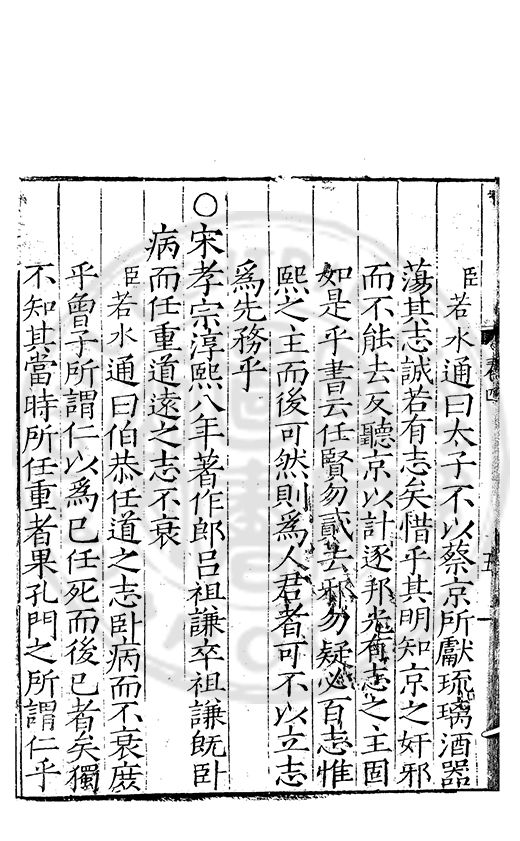 臣若水通曰太子不以蔡京所獻琉璃酒器
蕩其志誠若有志矣惜乎其明知京之奸邪
而不能去反聽京以計逐邦光有志之主固
如是乎書云任賢勿貳去邪勿疑必百志惟
熙之主而後可然則為人君者可不以立志
為先務乎
○宋孝宗淳熙八年著作郎呂祖謙卒祖謙既卧
病而任重道遠之志不衰
臣若水通曰伯恭任道之志卧病而不衰庶
乎曾子所謂仁以為已任死而後已者矣獨
不知其當時所任重者果孔門之所謂仁乎